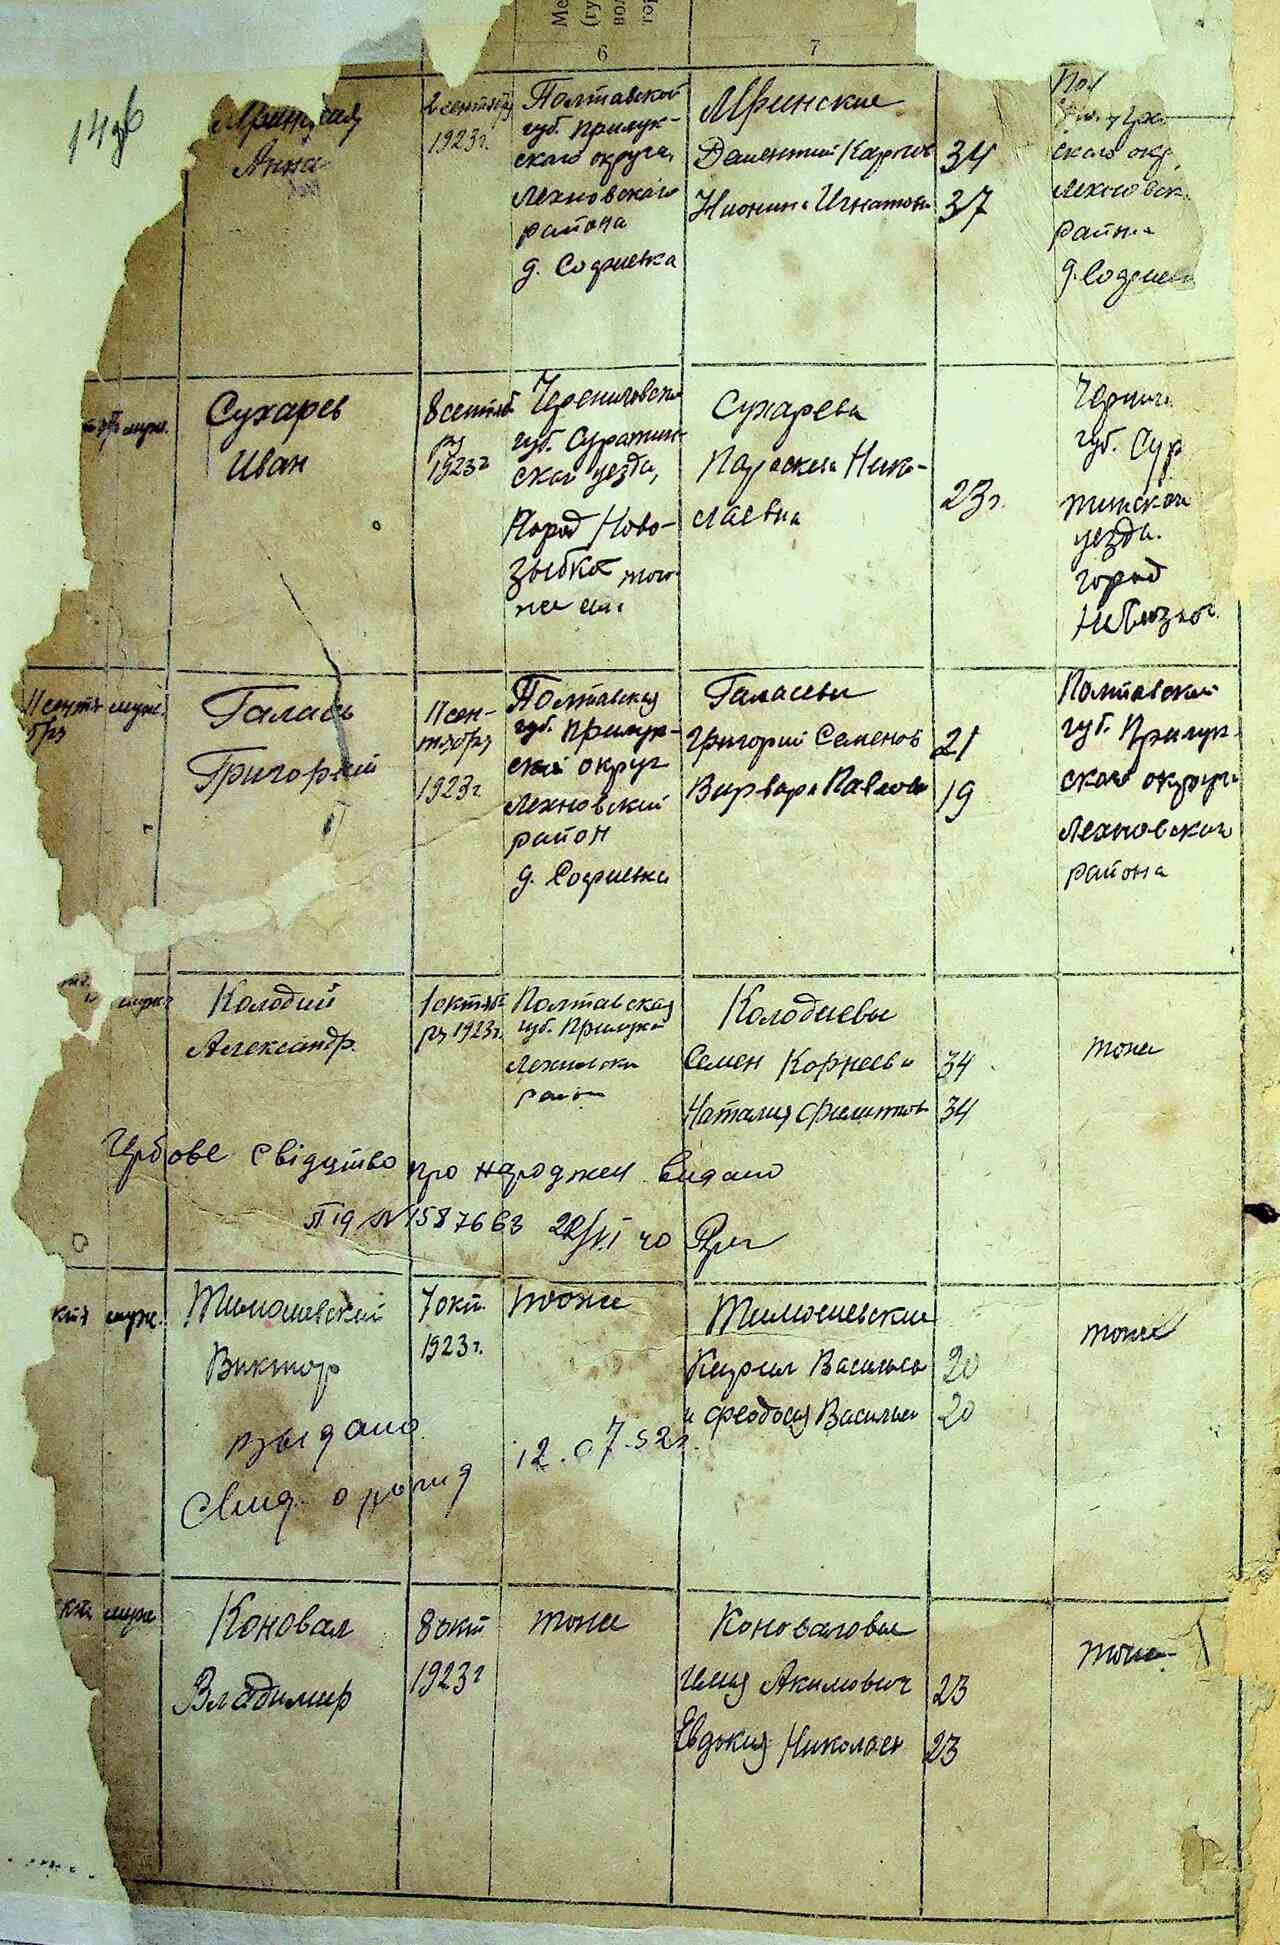 Ме
(гу
вол
гор
6
7
14 зв
Мринская
Анна
2 сентяб
1923г.
Полтавской
губ. Прилук-
ского округа,
Лехновского
района
д. Софиевка
Мринские
Дементий Карпов
Игнатов
34
37
Пол
ского окр.
Лехновск
района
д. Софиев
муж.
Сухарев
Иван
8 сентяб
ря
1923г
губ. Суражи-
ского уезда,
Город Ново-
зыбков того
же
Сухарева
Параскева Нико-
лаевна
23 г.
Черниг
губ. Сур
жинского
уезда.
город
11 сентя
бря
муж.
Галась
Григорий
11 сен-
тября
1923г.
Полтавская
губ. Прилук-
ский округ
Лехновский
район
д. Софиевка
Галасевы
Григорий Семенов
Варвара Павлов
21
19
Полтавской
губ. Прилук-
ского округа
Лехновского
района
муж
Колодий
Александр.
1 октяб
ря 1923г.
Полтавская
губ. Прилук
Лехновск
район
Колодиевы
Семен Корнеев
Наталия Филиппов
34
34
тоже
Гербове свідоцтво про народжен видано
Під № 1587663 22/VI 40
кт муж.
Тимошевский
Виктор
7 окт.
1923г.
тоже
Тимошевские
Кирил Васильев
и Феодосия Васильев
20
20
тоже
выдано
Свид. о рожд
12.07.52г.
кт муж
Коновал
Владимир
8 окт
1923г
тоже
Коноваловы
Илия Акимович
Евдокия Николаев
23
23
тоже